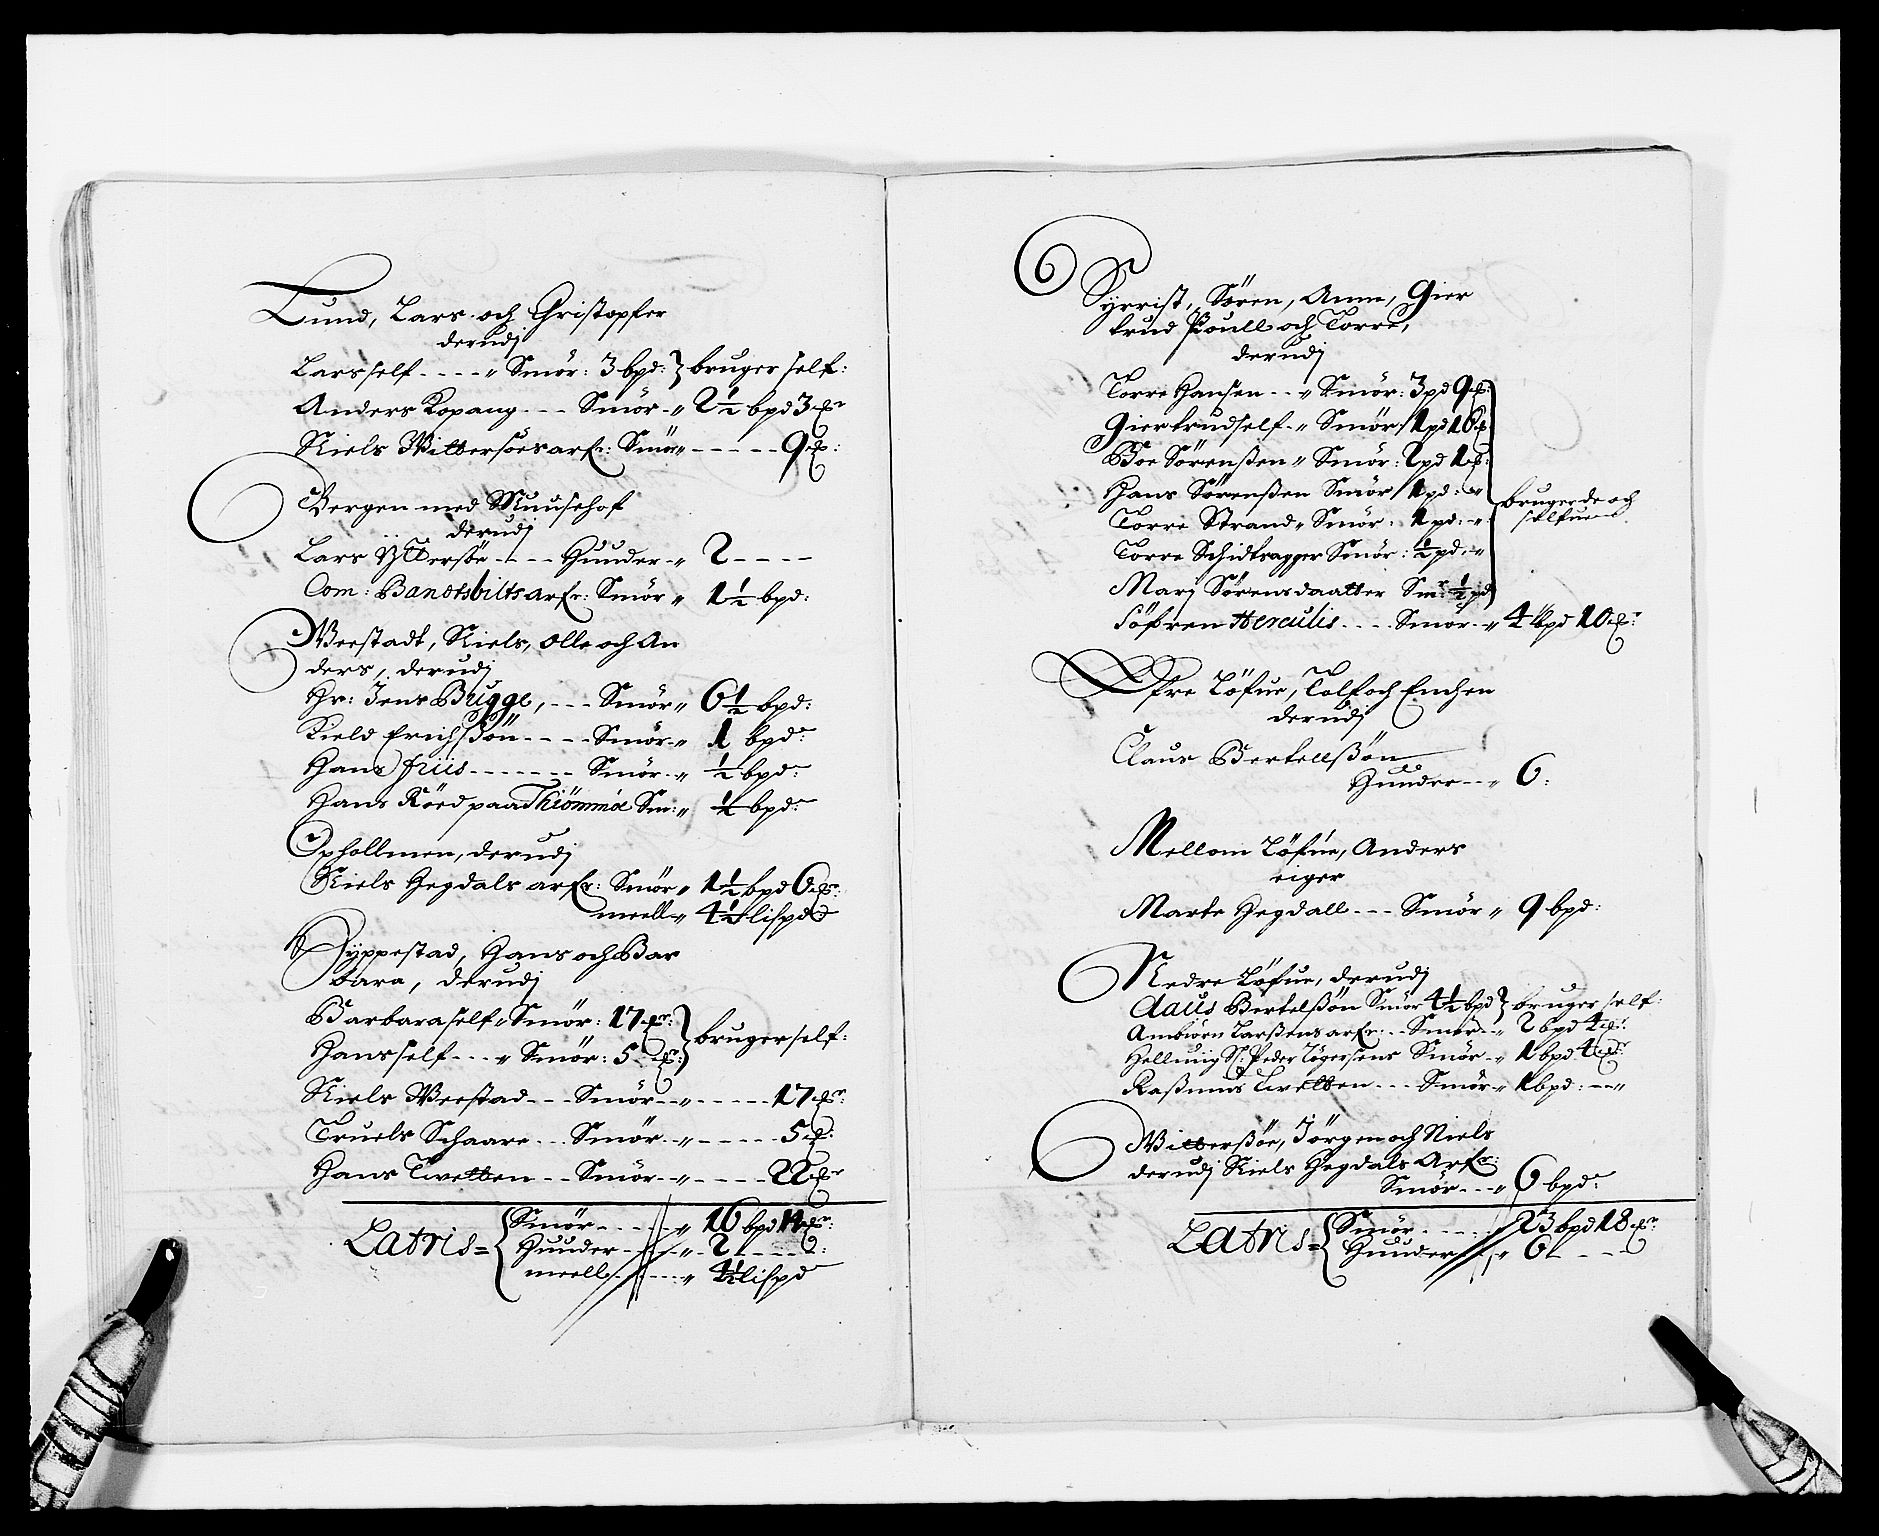 Lund, Lars och Christopfer
derudj
Lars self - - - - " Smör: 3 bpd: bruger self:
Anders Kopang - - - Smör - " 2½ bpd 3
Niels Wittersöes arf: Smör " - - - - - 9
Bergen med Muusehof
derudj
Lars Ytterböe - - - - Huuder - " 2 - - - -
Com: Bandtsbilts arf: Smör " 1½ bpd:
Weestadt, Niels, Olle och An
ders, derudj
Hr: Jens Bugge, - - - Smör " 6½ bpd:
Kield Erichßön - - - - Smör - " 1 bpd:
Hans friis - - - - - - - Smör - " ½ bpd:
Hans Röed paa Thiömmöe Sm: " ¼ bpd:
Opholltmen, derudj
Niels Hegdals arf: Smör " 1½ bpd 6
meell " 4½ lispd
Hans och Bar
bara, derudj
Barbara self " Smör: 17 bruger self:
Hans self - - - " Smör: 5
Niels Weestad - - - Smör - - " - - - - - 17
Truels Schaare - - - Smör - - " - - - - - 5
Hans Twetten - - - Smör - - " - - - - 22
Latris = Smör - - - - - " 16 bpd 11
Huuder - - - - " 2 - - - -
meell - - - - " 4½ lispd
Syrrist, Sören, Anne, Gier
trud Poull och Torre,
derudj
Torre Hansen - - " Smör: 3 pd 9
Giertrud self - " Smör: 1 pd 16
Boe Sörenßen " Smör: 2 pd 1
Hans Sörenßen Smör 1 pd: "
Torre Strand " Smör: 1 pd: "
bruger de och
selfue
Torre Schidtragger Smör: ½ pd: "
Marj Sörensdaatter Sm: ½ pd
Söfren Herculis - - - - Smör - " 4 bpd 10
Öfre Löfue, Tolf och Enchen
derudj
Claus Bertellßön
Huuder - - " 6:
Mellom Löfue, Anders
eiger
Marte Hegdall - - - Smör " 9 bpd:
Nedre Löfue, derudj
Claus Bertelßön Smör 4½ bpd bruger self:
Ambiörn Larßens arf: - - Smör - " 2 bpd 4
Helluig Sl: Peder Tögersens Smör - " 1 bpd 4
Raßmus Twetten - - - Smör " 1 bpd: - - "
Witterßöe, Jörgen och Niels
derudj Niels Hegdals Arf:
Smör - - - " 6 bpd:
Latris = Smör - - - - - 23 bpd 18
Huuder - - " 6 - - - -